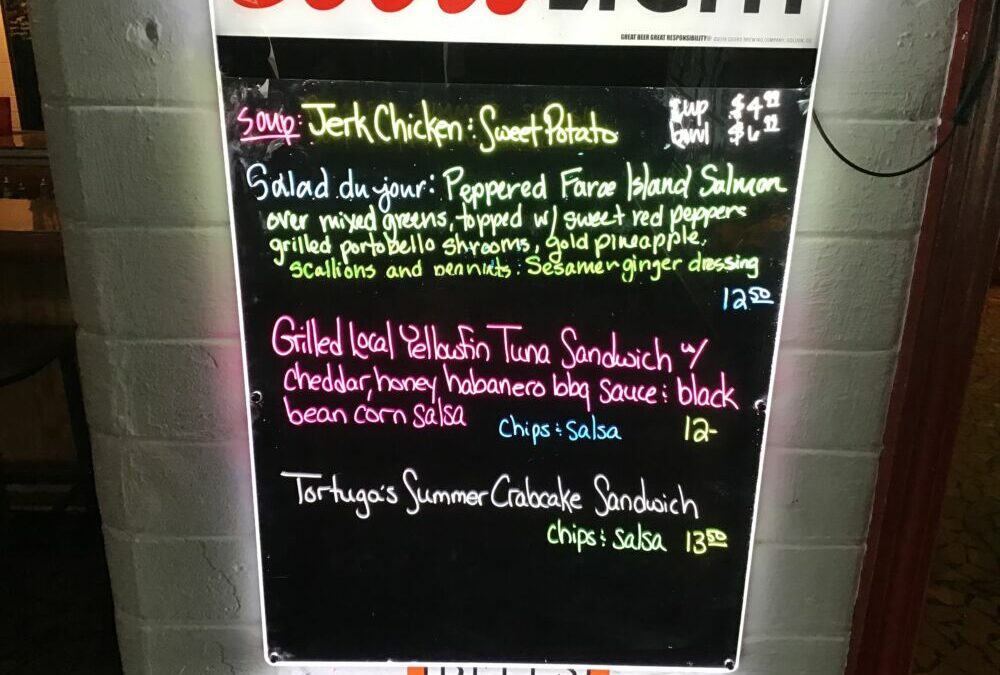 Coors LIGHT
GREAT BEER GREAT RESPONSIBILITY®
Soup: Jerk Chicken & Sweet Potato
cup $4.99
bowl $6.99
Salad du jour: Peppered Faroe Island Salmon
over mixed greens, topped w/ sweet red peppers
grilled portobello shrooms, gold pineapple,
scallions and peanuts. Sesame ginger dressing
12 50
Grilled Local Yellowfin Tuna Sandwich w/
cheddar, honey habanero bbq sauce & black
bean corn salsa
chips & salsa 12-
Tortuga's Summer Crabcake Sandwich
chips & salsa 13 50